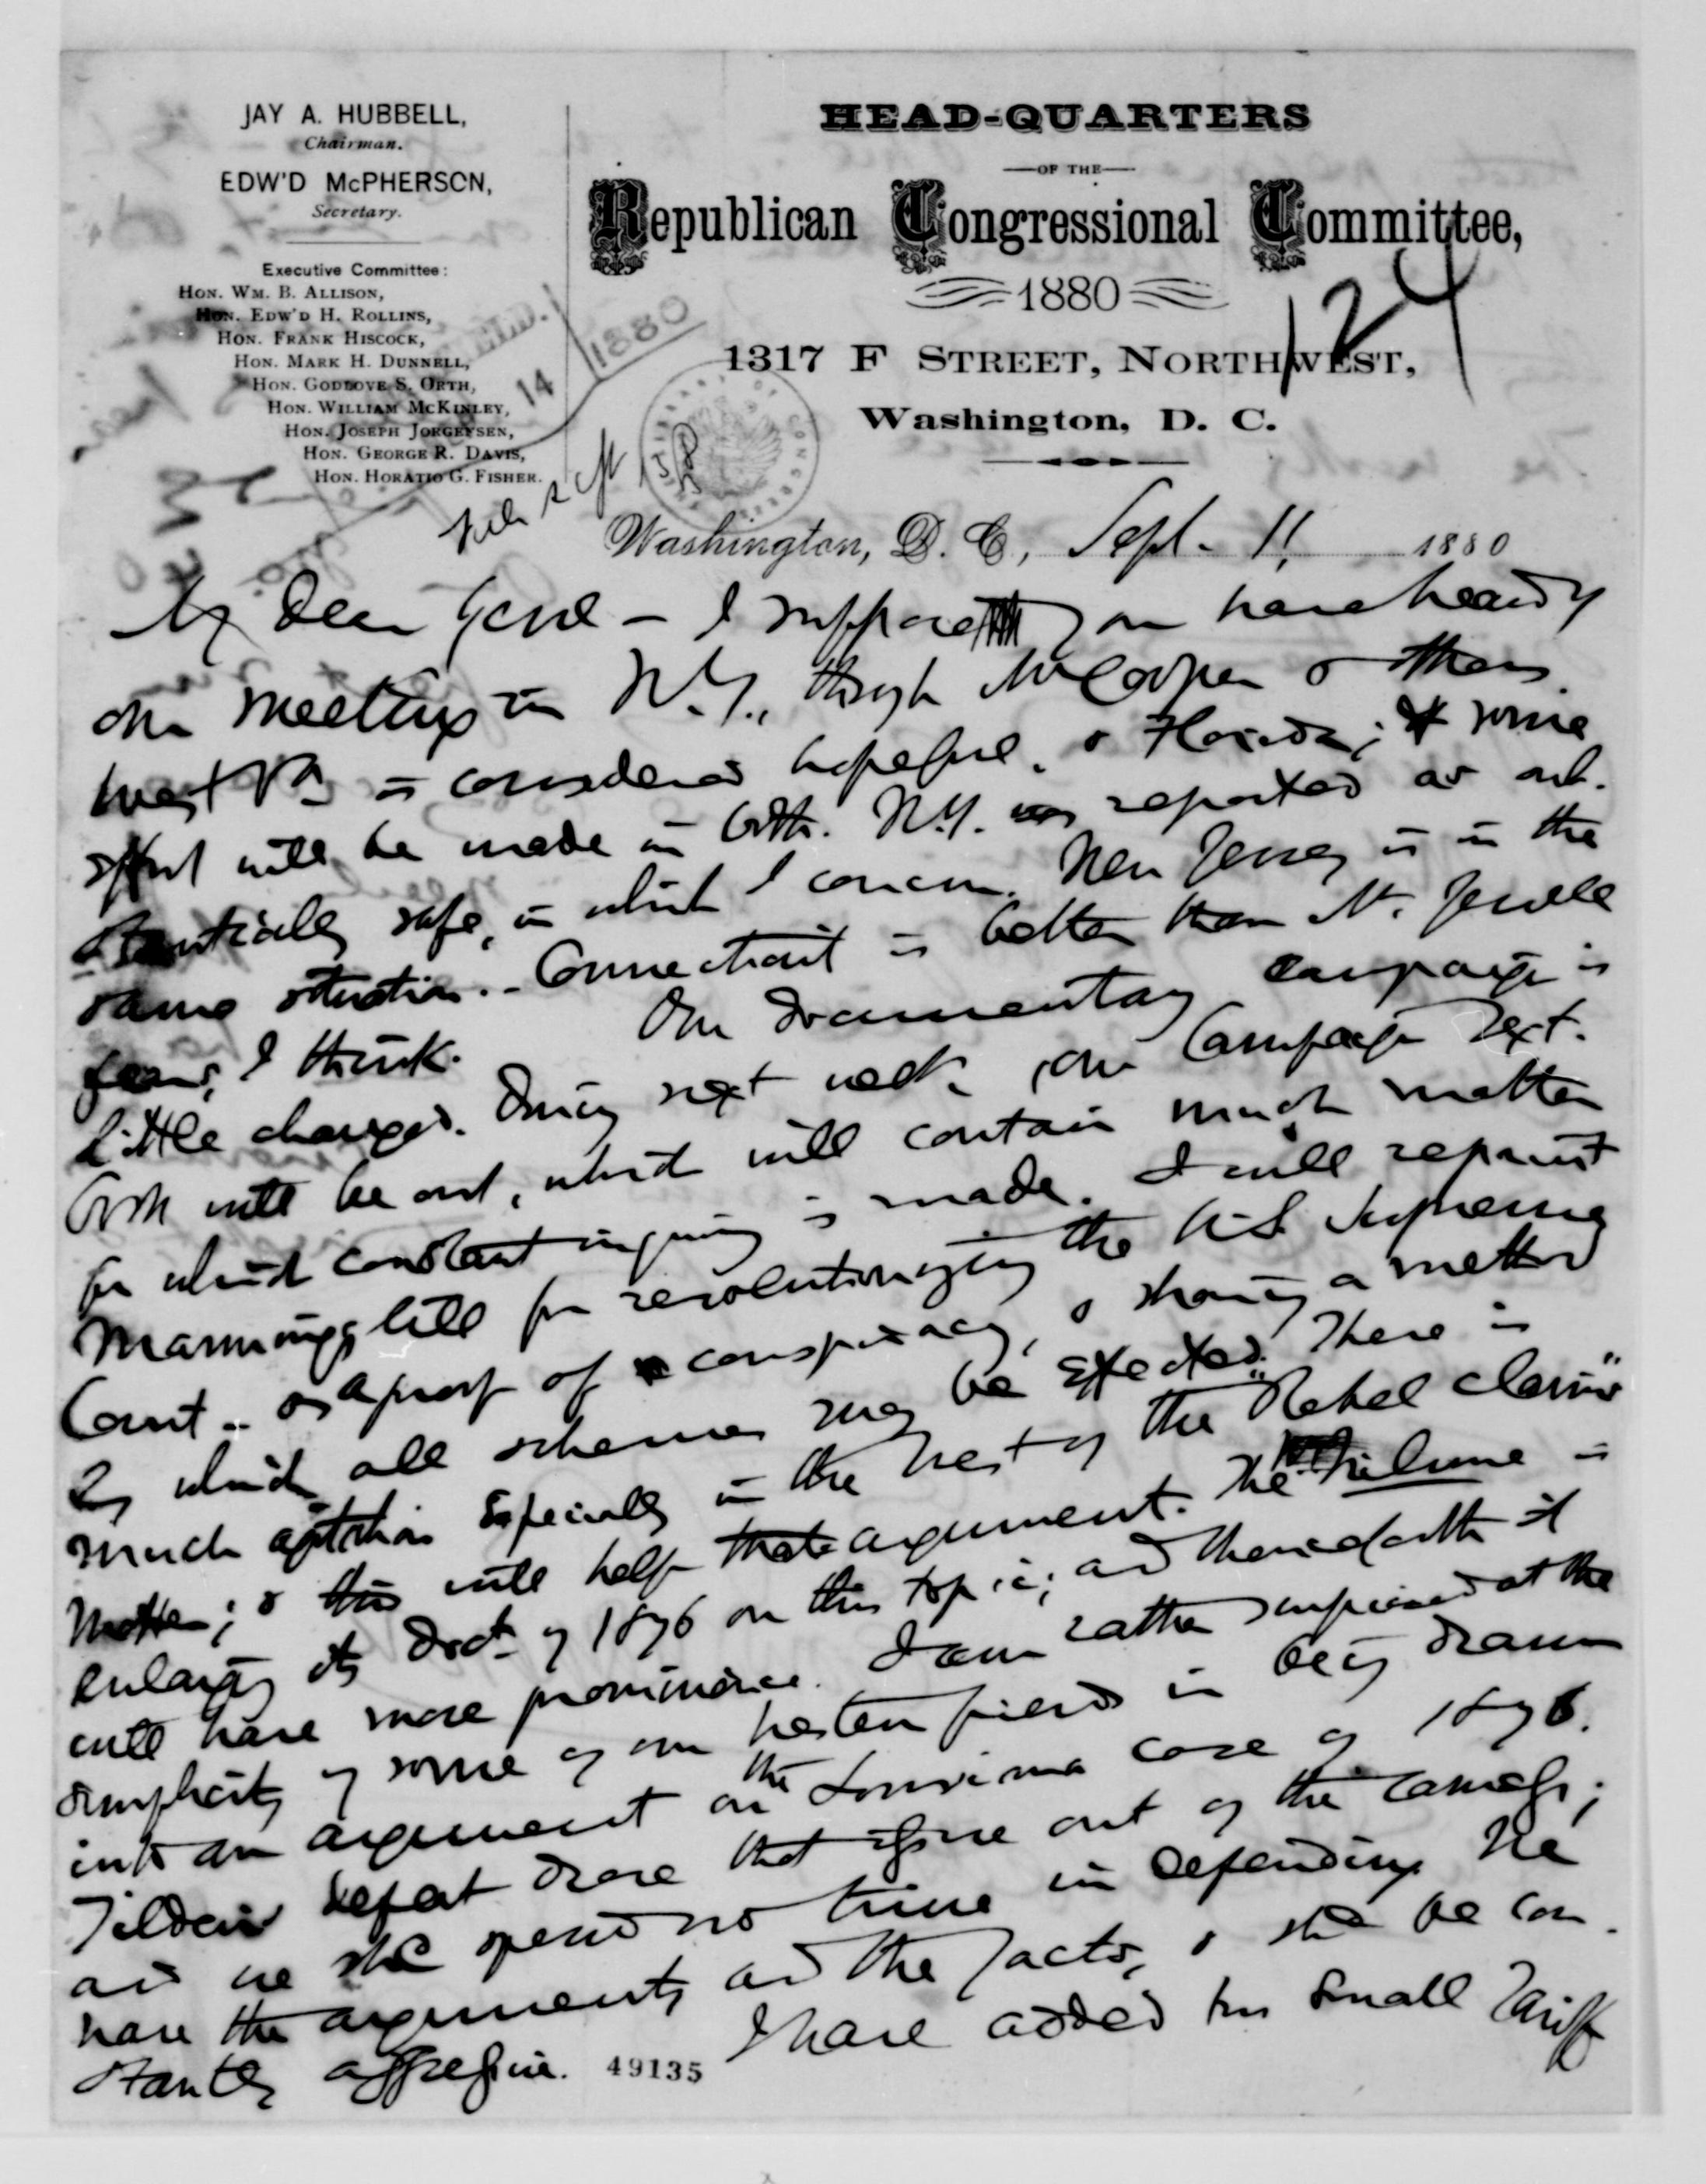 JAY A. HUBBELL,
Chairman.
EDW'D McPHERSON,
Secretary.
Executive Committee:
HON. WM. B. ALLISON,
HON. EDW'D H. ROLLINS,
HON. FRANK HISCOCK,
HON. MARK H. DUNNELL,
HON. GODLOVE S. ORTH,
HON. WILLIAM McKINLEY,
HON. JOSEPH JORGENSEN,
HON. GEORGE R. DAVIS,
HON. HORATIO G. FISHER.
HEAD-QUARTERS
OF THE
Republican Congressional Committee,
1880
124
1317 F STREET, NORTHWEST,
Washington, D. C.
14 1880
Washington, D. C., Sept. 11, 1880
My Dear Genl - I suppose you have heard of
our meeting in N.Y., through Mr Cooper & others.
West Va is considered hopeful, & Florida; & some
effort will be made in both. N.Y. was reported as sub-
stantially safe, in which I concur. New Jersey is in the
same situation. - Connecticut is better than Mr. Jewell
fears, I think. Our Documentary campaign is
little changed. During next week, our Campaign Text
Book will be out, which will contain much matter
for which constant inquiry is made. I will reprint
Manning's bill for revolutionizing the U.S. Supreme
Court - as a proof of conspiracy, & showing a method
by which all schemes may be effected. There is
much agitation especially in the West of the "Rebel claims"
matter; & this will help that argument. The Tribune is
enlarging its Doct. of 1876 on this topic; and thenceforth it
will have more prominence. I am rather surprised at the
simplicity of some of our western friends in being drawn
into an argument on the Louisiana case of 1876.
Tilden's defeat drove that issue out of the canvass;
and we shd spend no time in defending. We
have the arguments and the facts, & shd be con-
stantly aggressive. I have added two small Tariff
49135